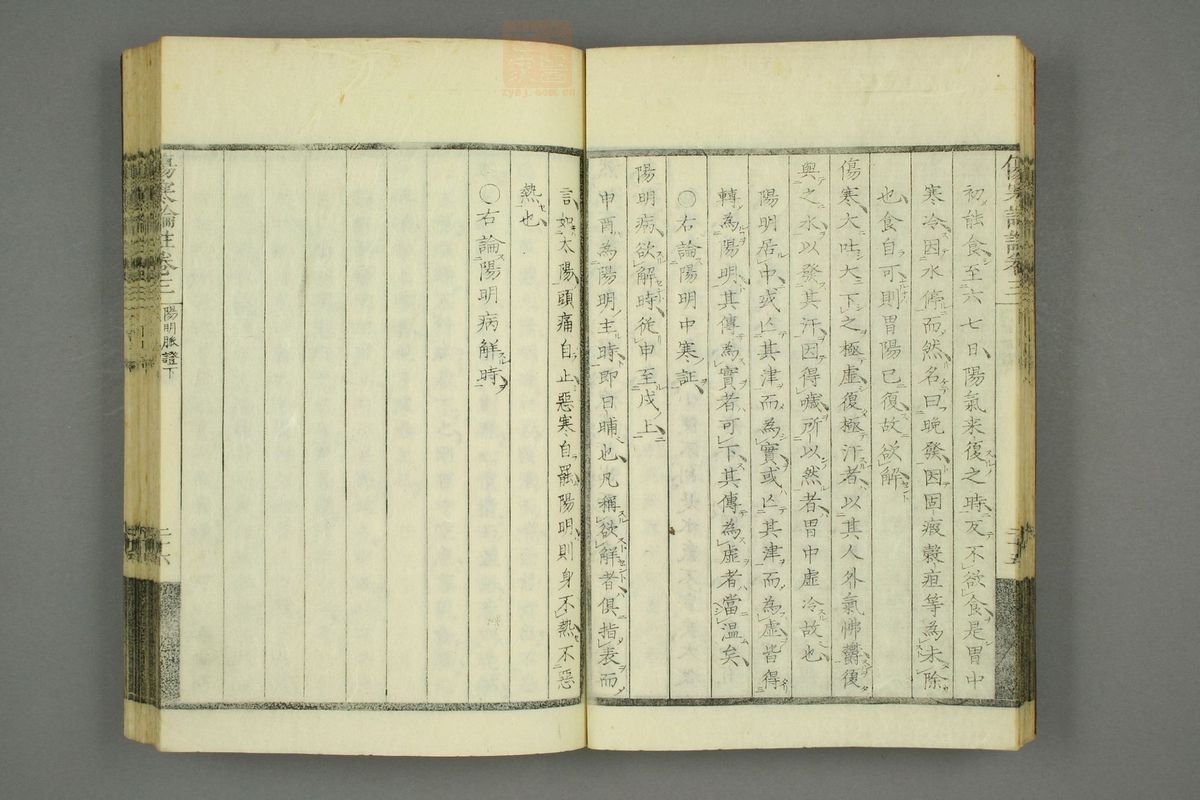 初能食至六七日陽氣来復之時反不欲食是胃中
寒冷因水停而然名曰晚發因固瘕穀疸等為未除
也食自可則胃陽已復故欲解
傷寒大吐大下之極虛復極汗者以其人外氣怫鬱復
與之水以發其汗因得噦所以然者胃中虛冷故也
陽明居中或亡其津而為實或亡其津而為虛皆得
轉為陽明其傳為實者可下其傳為虛者當溫矣
〇右論陽明中寒証
陽明病欲解時從申至戌上
申酉為陽明主時即日晡也凡稱欲解者俱指表而
言如太陽頭痛自止惡寒自罷陽明則身不熱不惡
熱也
〇右論陽明病解時
傷寒論註卷三
陽明脈證下
二十六